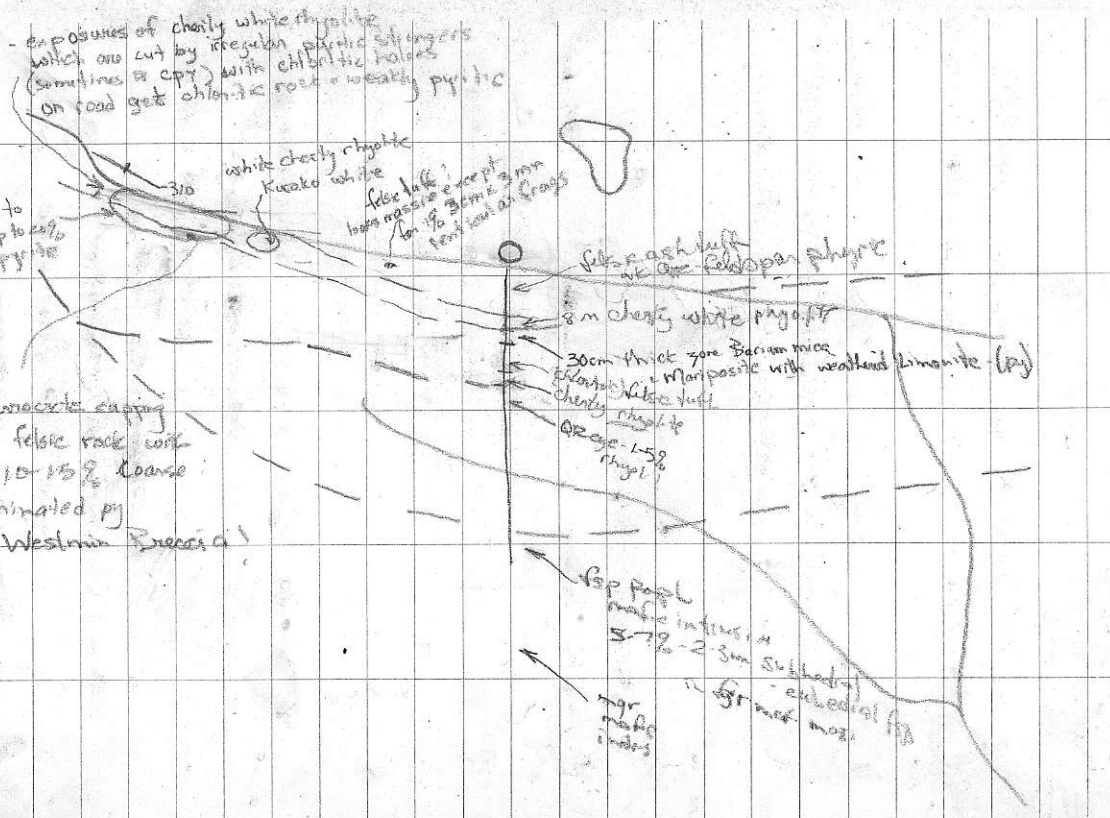 - exposures of cherty white rhyolite
which are cut by irregular pyritic stringers
(sometimes cpy) with chloritic halos
on road get chloritic rock - weakly pyritic
310
white cherty rhyolite
Kuroko white
felsic tuff?
looks massive except
for 1% 3cm x 3mm
lenticular frags
to
up to 20%
pyrite
felsic ash tuff
feldspar phyric
8 m cherty white rhyolite
30cm thick zone Barium mica
+ Mariposite with weathered Limonite - (py)
chloritic felsic tuff
cherty rhyolite
QZ eye - 1-5%
rhyol!
capping
felsic rock with
10-15% Coarse
py
Westmin Breccia!
fsp porph
mafic intrusive
5-7% - 2-3mm subhedral
- euhedral fsp
in fgr maf
mgr
mafic
intrus